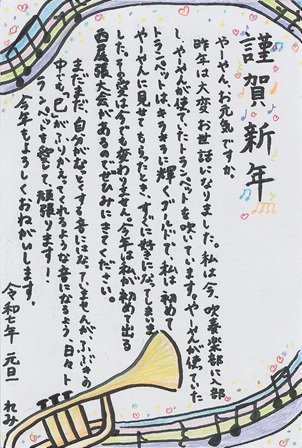 謹賀新年
やーやん、お元気ですか。
昨年は大変お世話になりました。私は今、吹奏楽部に入部
し、やーやんが使っていたトランペットを吹いています。やーやんが使っていた
トランペットはキラキラに輝くゴールドで、私は初めて
やーやんに見せてもらったとき、すぐに好きになってしまいま
した。その気持は今でも変わりません。今年は私が初めて出る
西尾張大会があるのでぜひみにきてください。
まだまだ自分がなっとくする音にはなっていませんが、ぶぶきの
中でも、「巳」がふりかえてくれるような音になるよう、日々ト
ンペットを吹いて、頑張ります!
今年もよろしくおねがいします。
令和七年 元旦 れみ